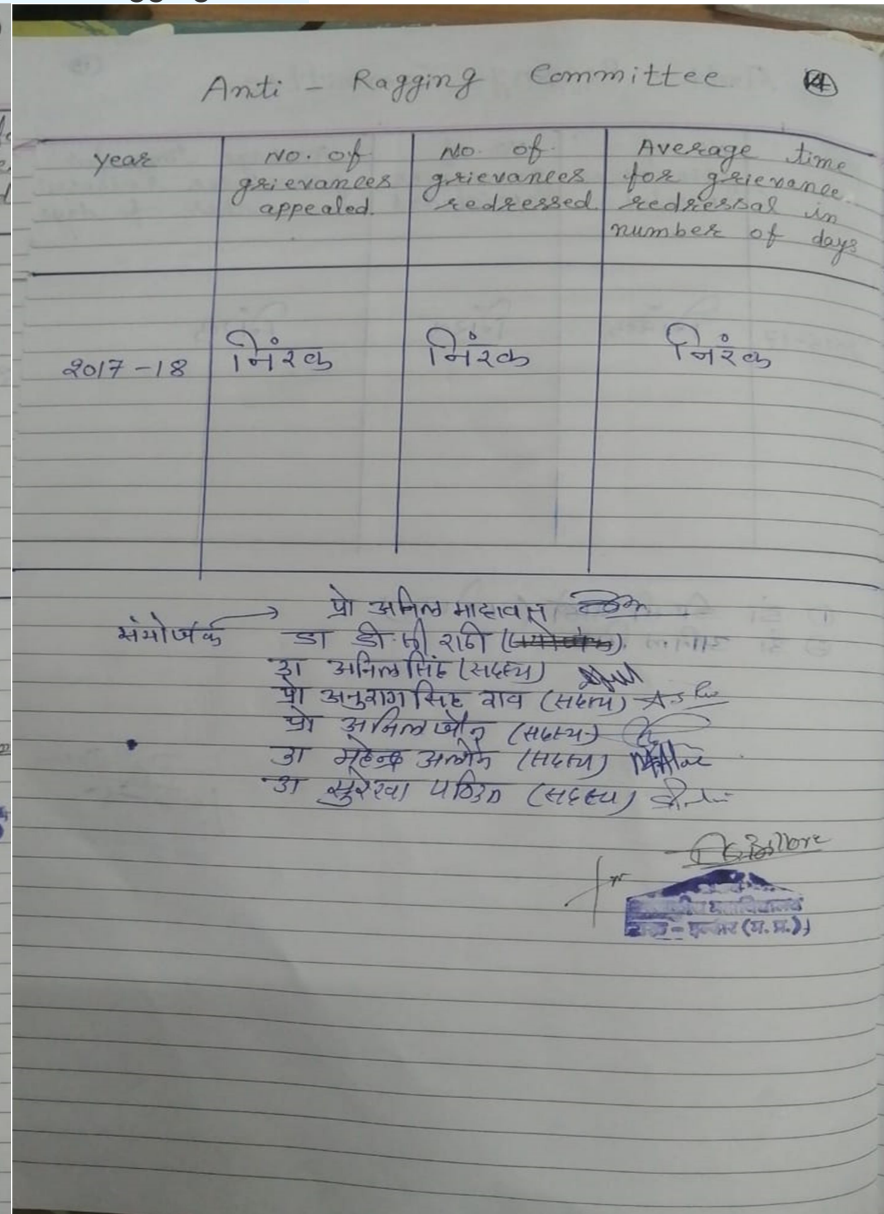 Anti - Ragging Committee 14
Year
No. of grievances appealed.
No. of grievances redressed
Average time for grievance redressal in number of days
2017-18 निंरक निंरक निंरक
प्रो अनिल
संयोजक डा डी.
डा अनिल सिंह (सदस्य)
प्रो अनुराग सिंह राव (सदस्य)
प्रो अनिल जैन (सदस्य)
डा (सदस्य)
डा सुरेखा (सदस्य)
(म.प्र.)